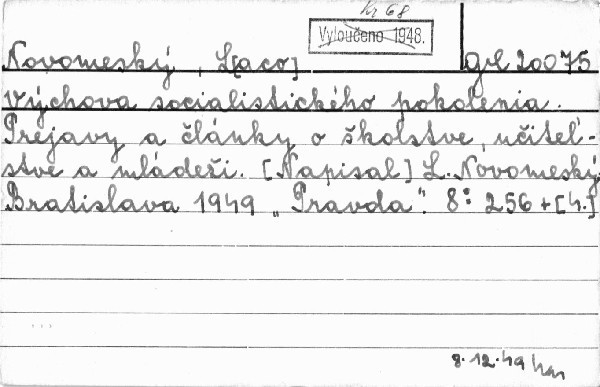 Kr 68
Vyloučeno 1948.
Novomeský, L[aco] gd 20075
Výchova socialistického pokolenia.
Prejavy a články o školstve, učiteľ-
stve a mládeži. [Napísal] L. Novomeský
Bratislava 1949 "Pravda". 8° 256 + [4.]
8.12.49